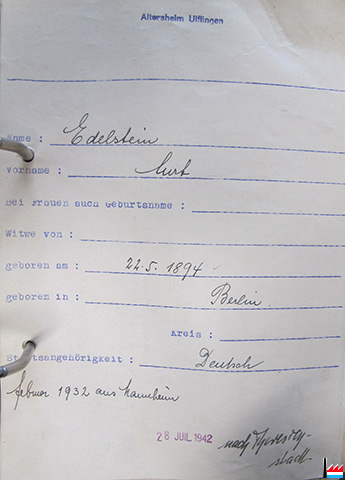 Altersheim Ulflingen
Name : Edelstein
Vorname : Curt
Bei Frauen auch Geburtsname :
Witwe von :
geboren am : 22.5. 1894
geboren in : Berlin
Kreis :
Staatsangehörigkeit : Deutsch
1932 aus Mannheim
28 JUIL 1942
nach Theresien-
stadt.